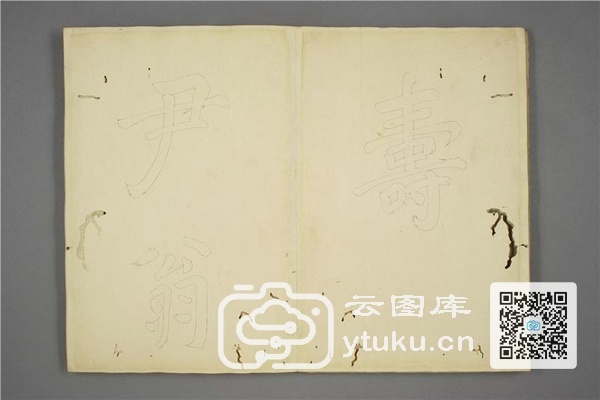 壽
尹翁
云图库
ytuku.cn